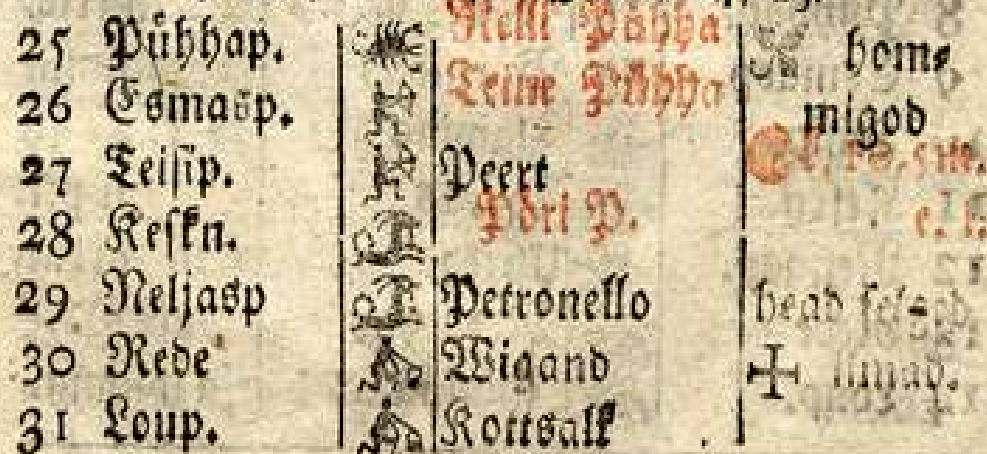 25 Pühhap. Nelli Pühha hom⸗
26 Esmasp. Teine Pühha migod
27 Teisip. Peert
28 Keskn. Pöri P.
29 Neljasp Petronello head
30 Rede Wigand ilmad.
31 Loup. Kottsalk